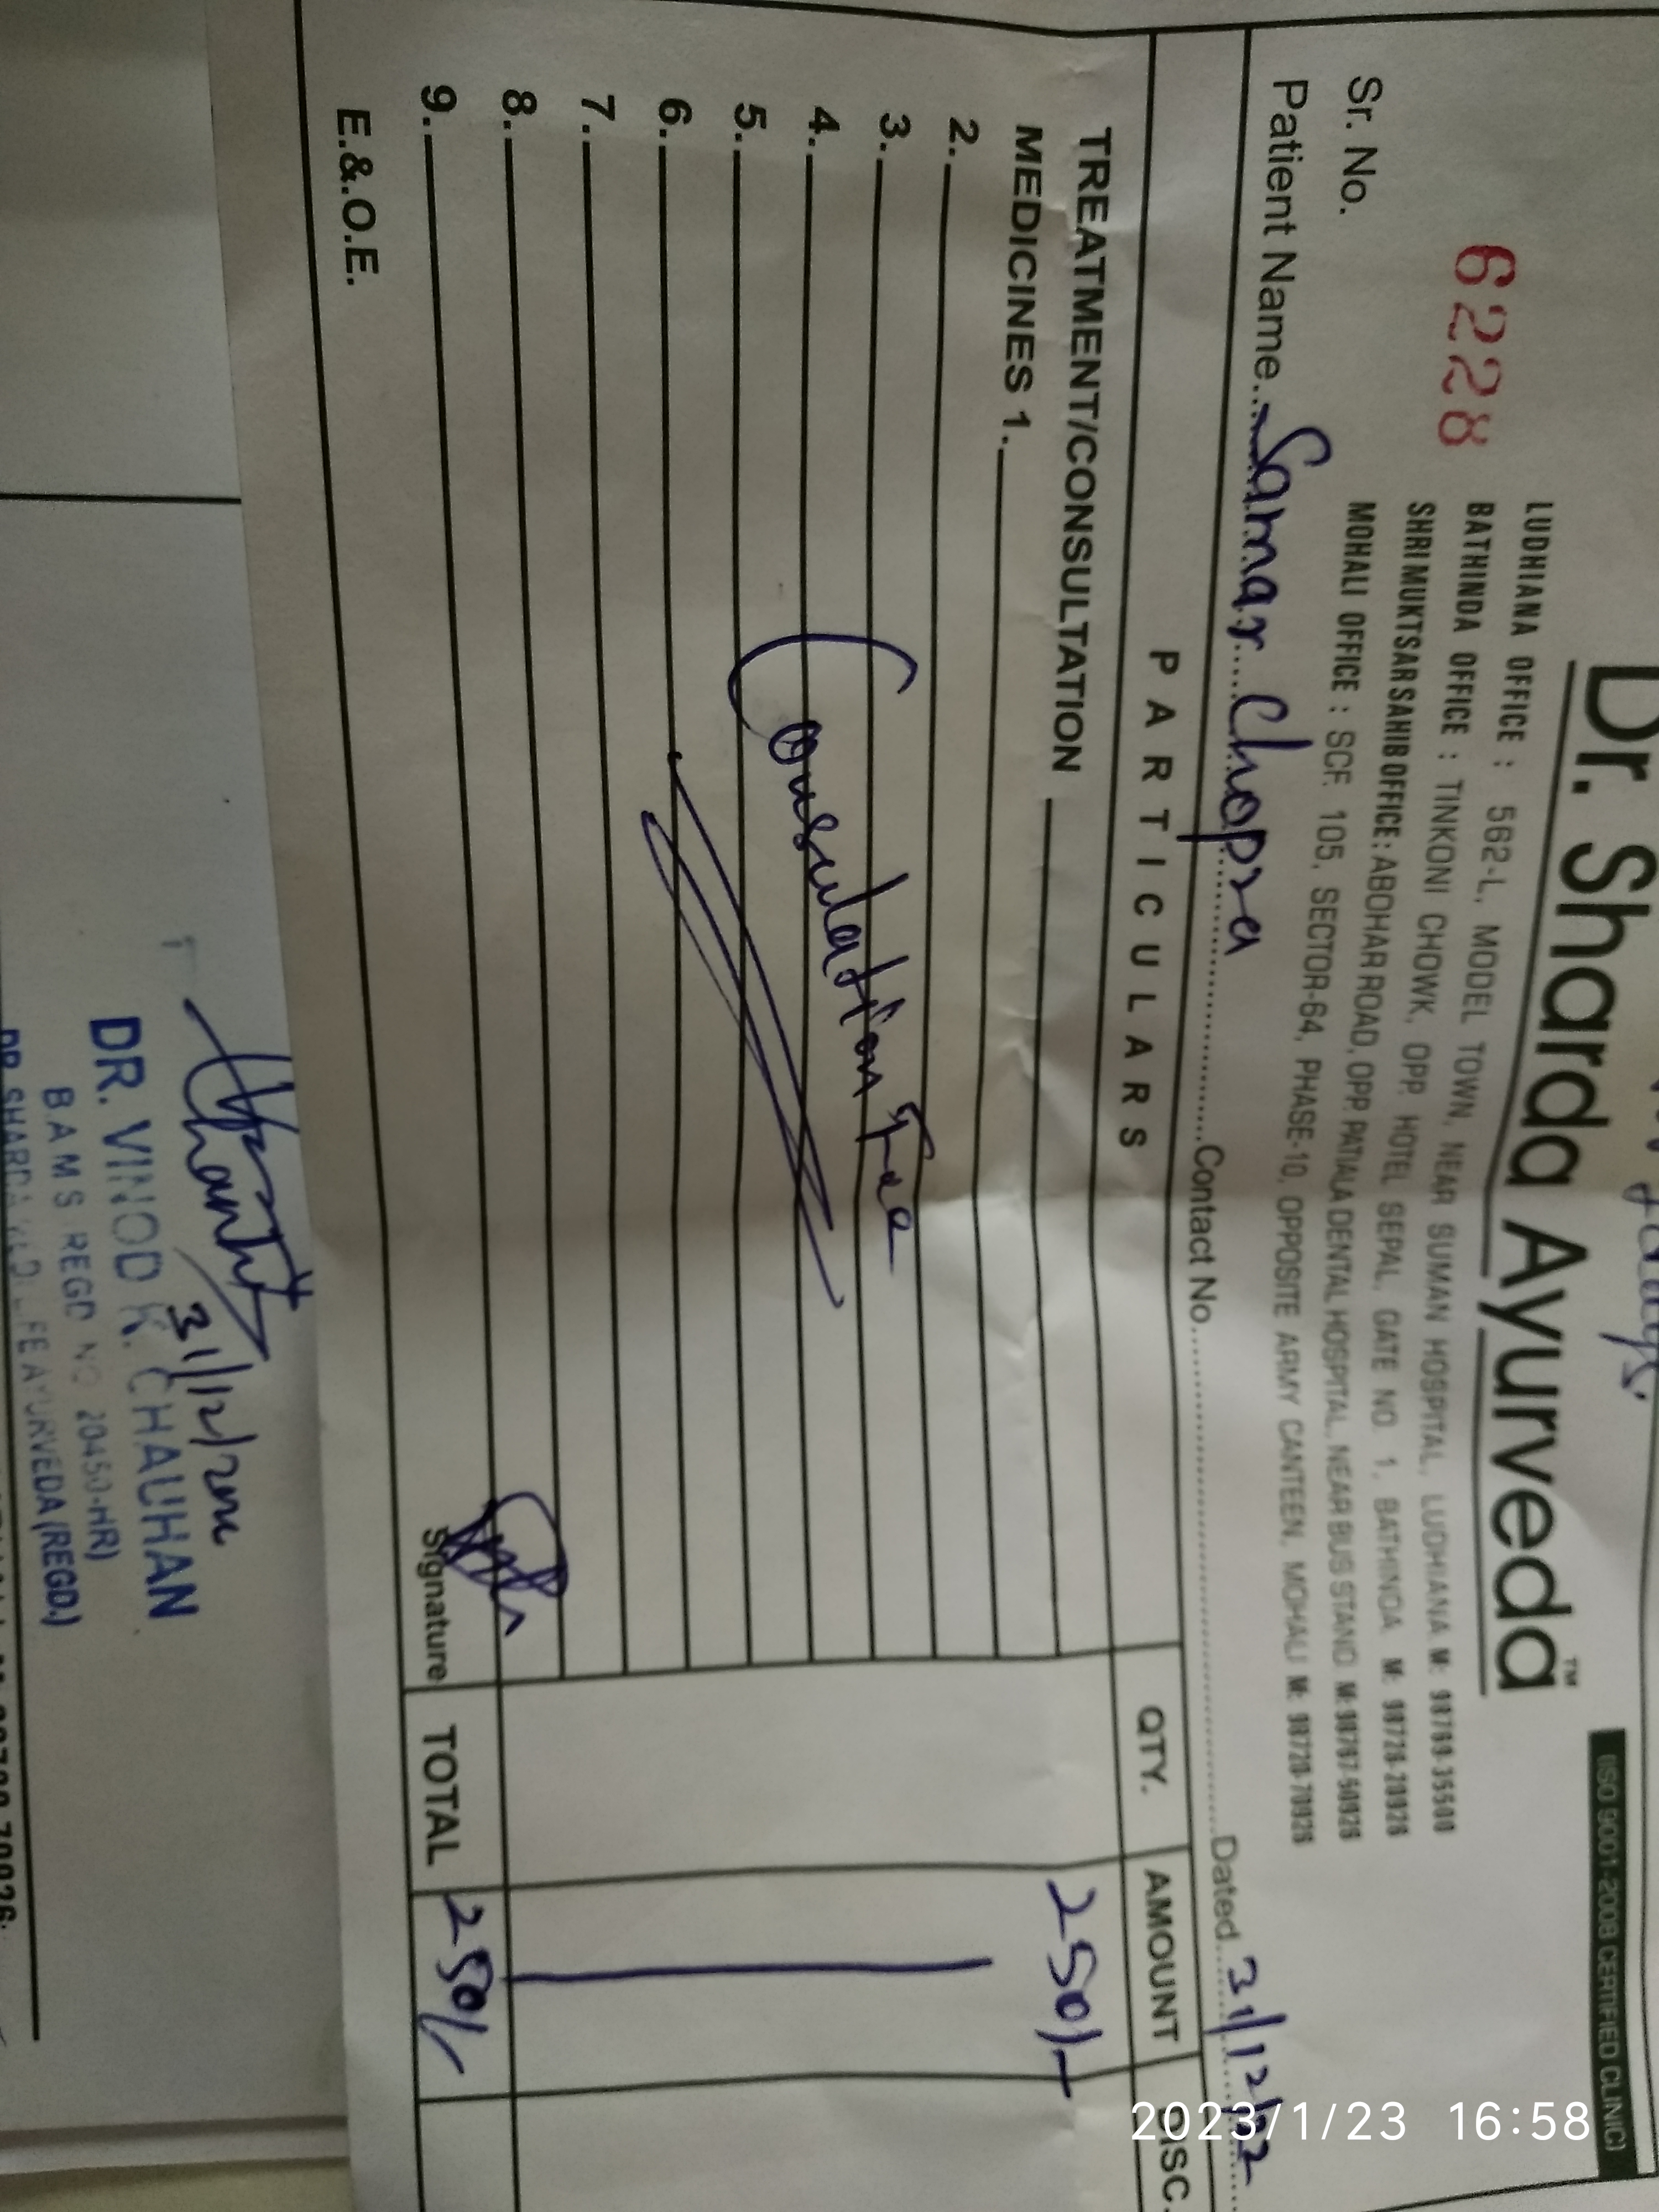 Dr. Sharda Ayurveda™
(ISO 9001-2008 CERTIFIED CLINIC)
6228
LUDHIANA OFFICE : 562-L, MODEL TOWN, NEAR SUMAN HOSPITAL, LUDHIANA M: 98769-35500
BATHINDA OFFICE : TINKONI CHOWK, OPP. HOTEL SEPAL, GATE NO. 1, BATHINDA M: 98726-20926
SHRI MUKTSAR SAHIB OFFICE: ABOHAR ROAD, OPP. PATIALA DENTAL HOSPITAL, NEAR BUS STAND M: 98767-50926
MOHALI OFFICE : SCF. 105, SECTOR-64, PHASE-10, OPPOSITE ARMY CANTEEN, MOHALI M: 98720-70926
Sr. No.
Patient Name...Samar Chopra Contact No. Dated 31/12/22
PARTICULARS QTY. AMOUNT DISC.
TREATMENT/CONSULTATION 250/-
MEDICINES 1.
2.
3.
4. Consulation Fee
5.
6.
7.
8.
9.
E.&.O.E. Signature TOTAL 250/-
31/12/2022
DR. VINOD K. CHAUHAN
B A M S REGD NO 20450-HR)
DR SHARDA LIFE AYURVEDA (REGD.)
2023/1/23 16:58